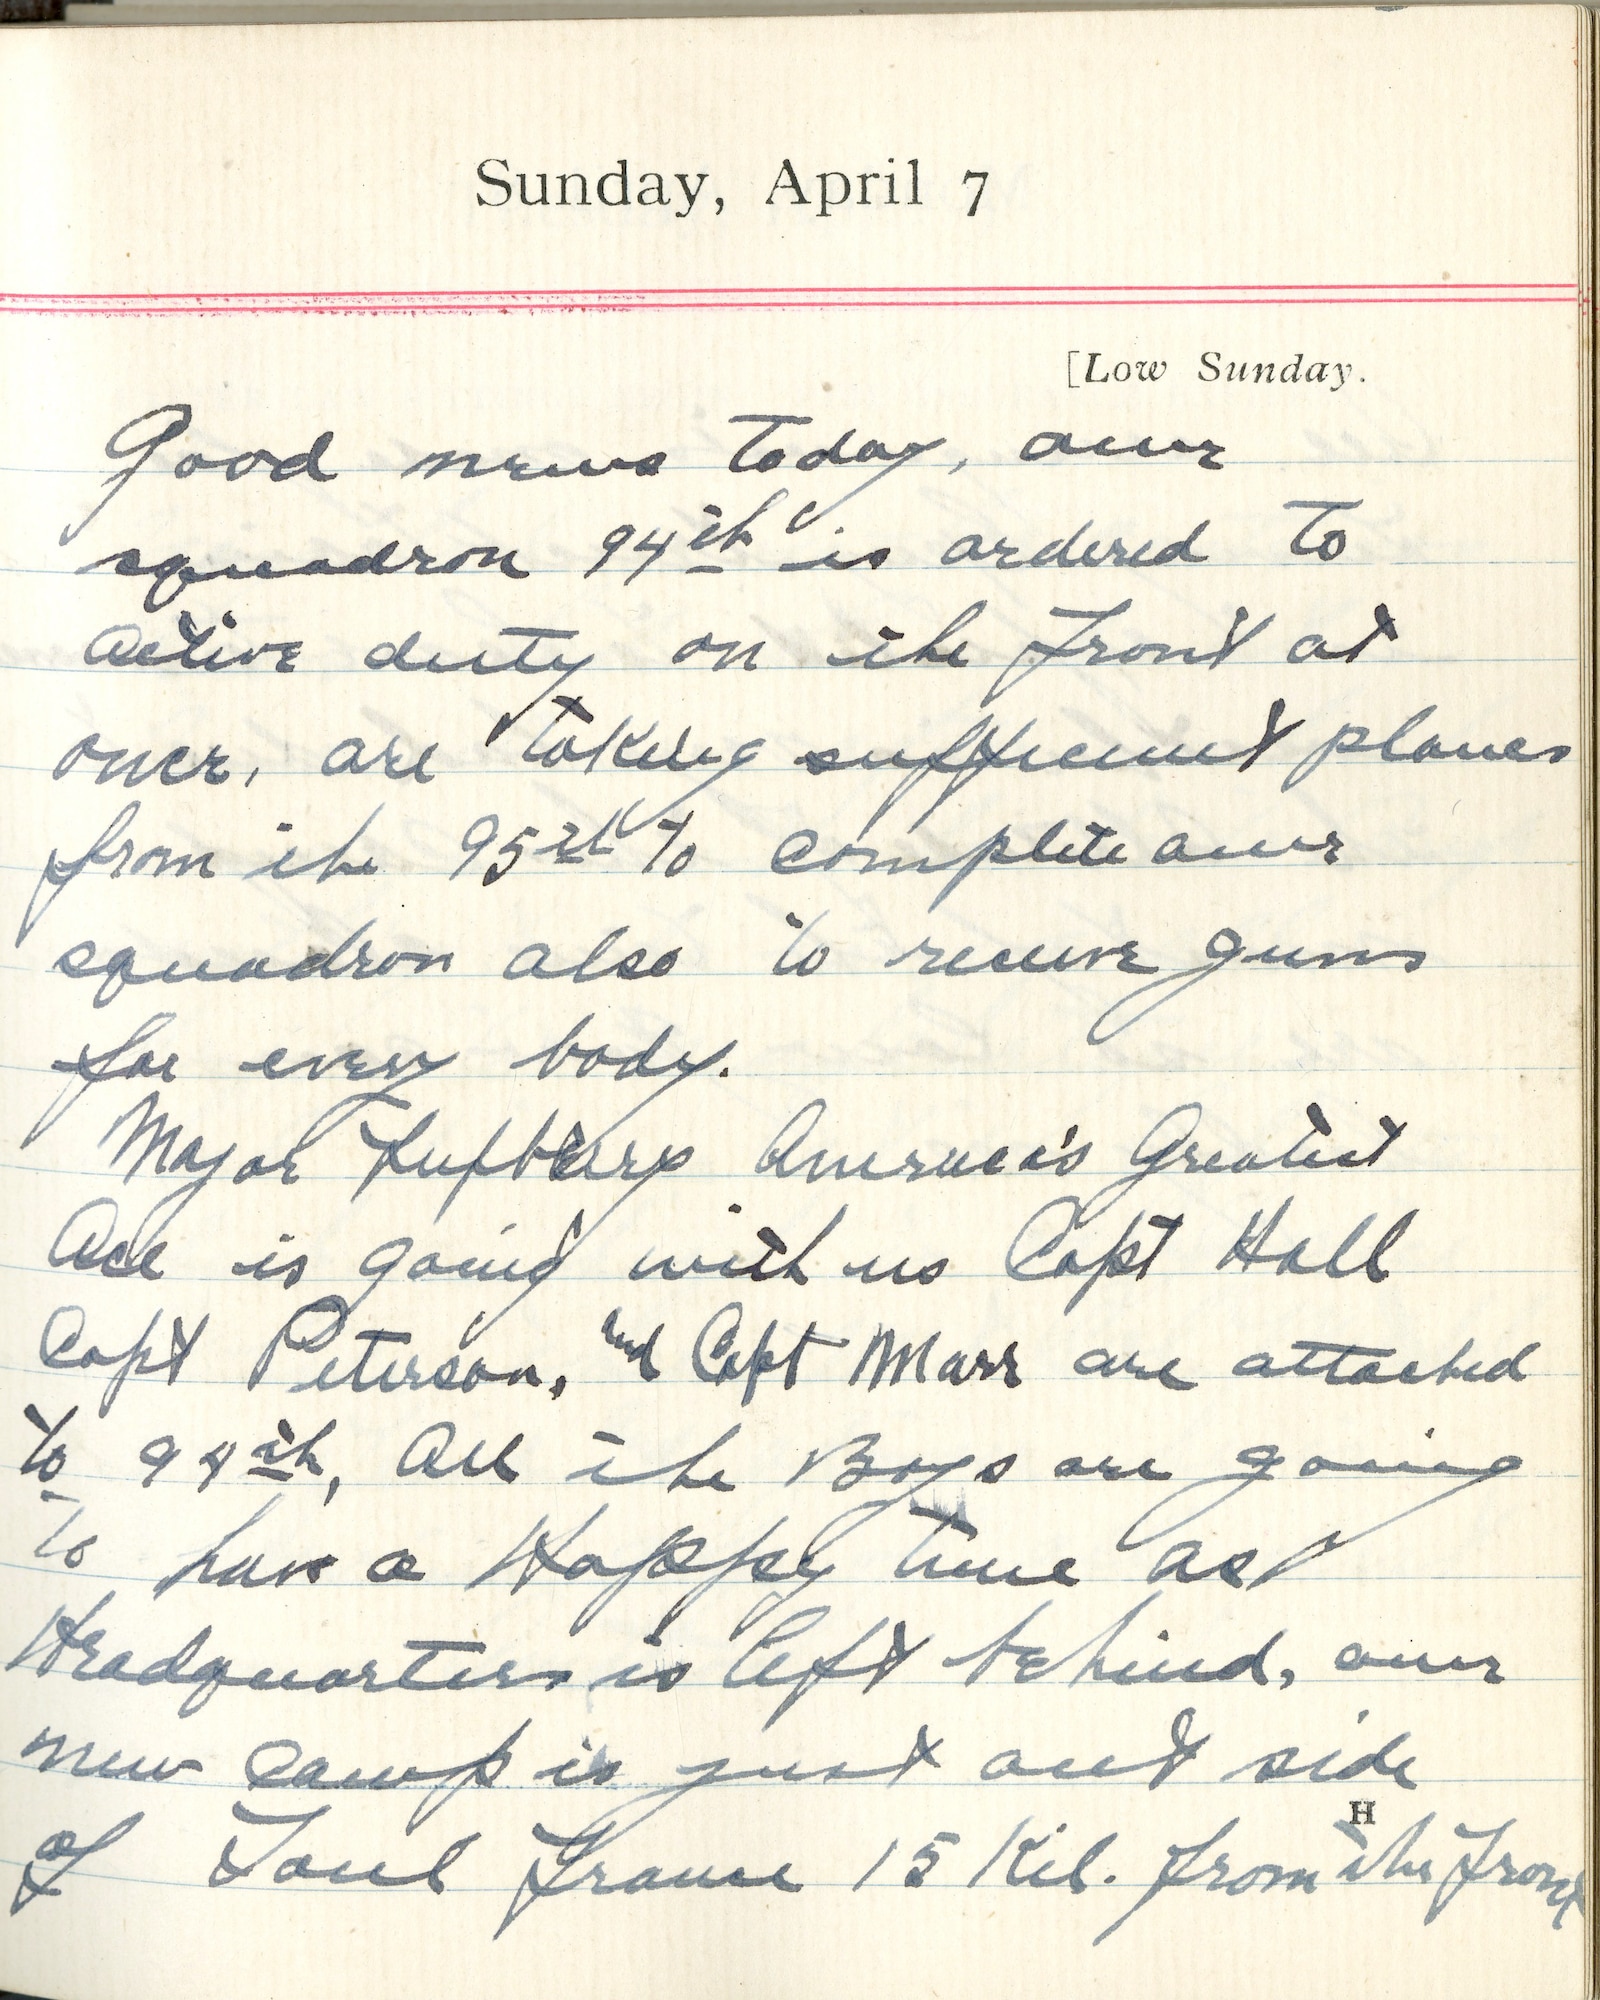 Sunday, April 7
[Low Sunday.
Good news today, our
squadron 94th is ordered to
active duty on the front at
once, are taking sufficient planes
from the 95th to complete our
squadron also to receive guns
for every body.
Major Lufberry America's Greatest
Ace is going with us Capt Hall
Capt Peterson, and Capt Marr are attached
to 94th, All the Boys are going
to have a Happy time as
Headquarters is left behind, our
new camp is just out side
H
of Toul France 15 Kil. from the front